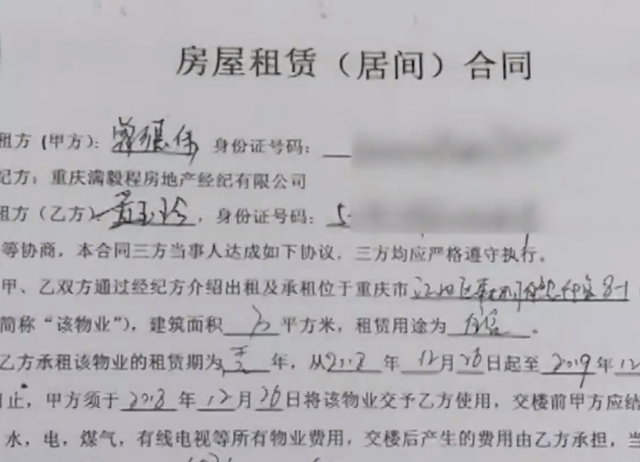 房屋租赁（居间）合同
租方（甲方）： 身份证号码：
纪方：重庆满毅程房地产经纪有限公司
租方（乙方） ，身份证号码：5
等协商，本合同三方当事人达成如下协议，三方均应严格遵守执行。
甲、乙双方通过经纪方介绍出租及承租位于重庆市江北区 8-1
简称“该物业”），建筑面积 平方米，租赁用途为住宅。
乙方承租该物业的租赁期为壹年，从2018年12月26日起至2019年12
日止，甲方须于2018年12月26日将该物业交予乙方使用，交楼前甲方应结
水，电，煤气，有线电视等所有物业费用，交楼后产生的费用由乙方承担，当